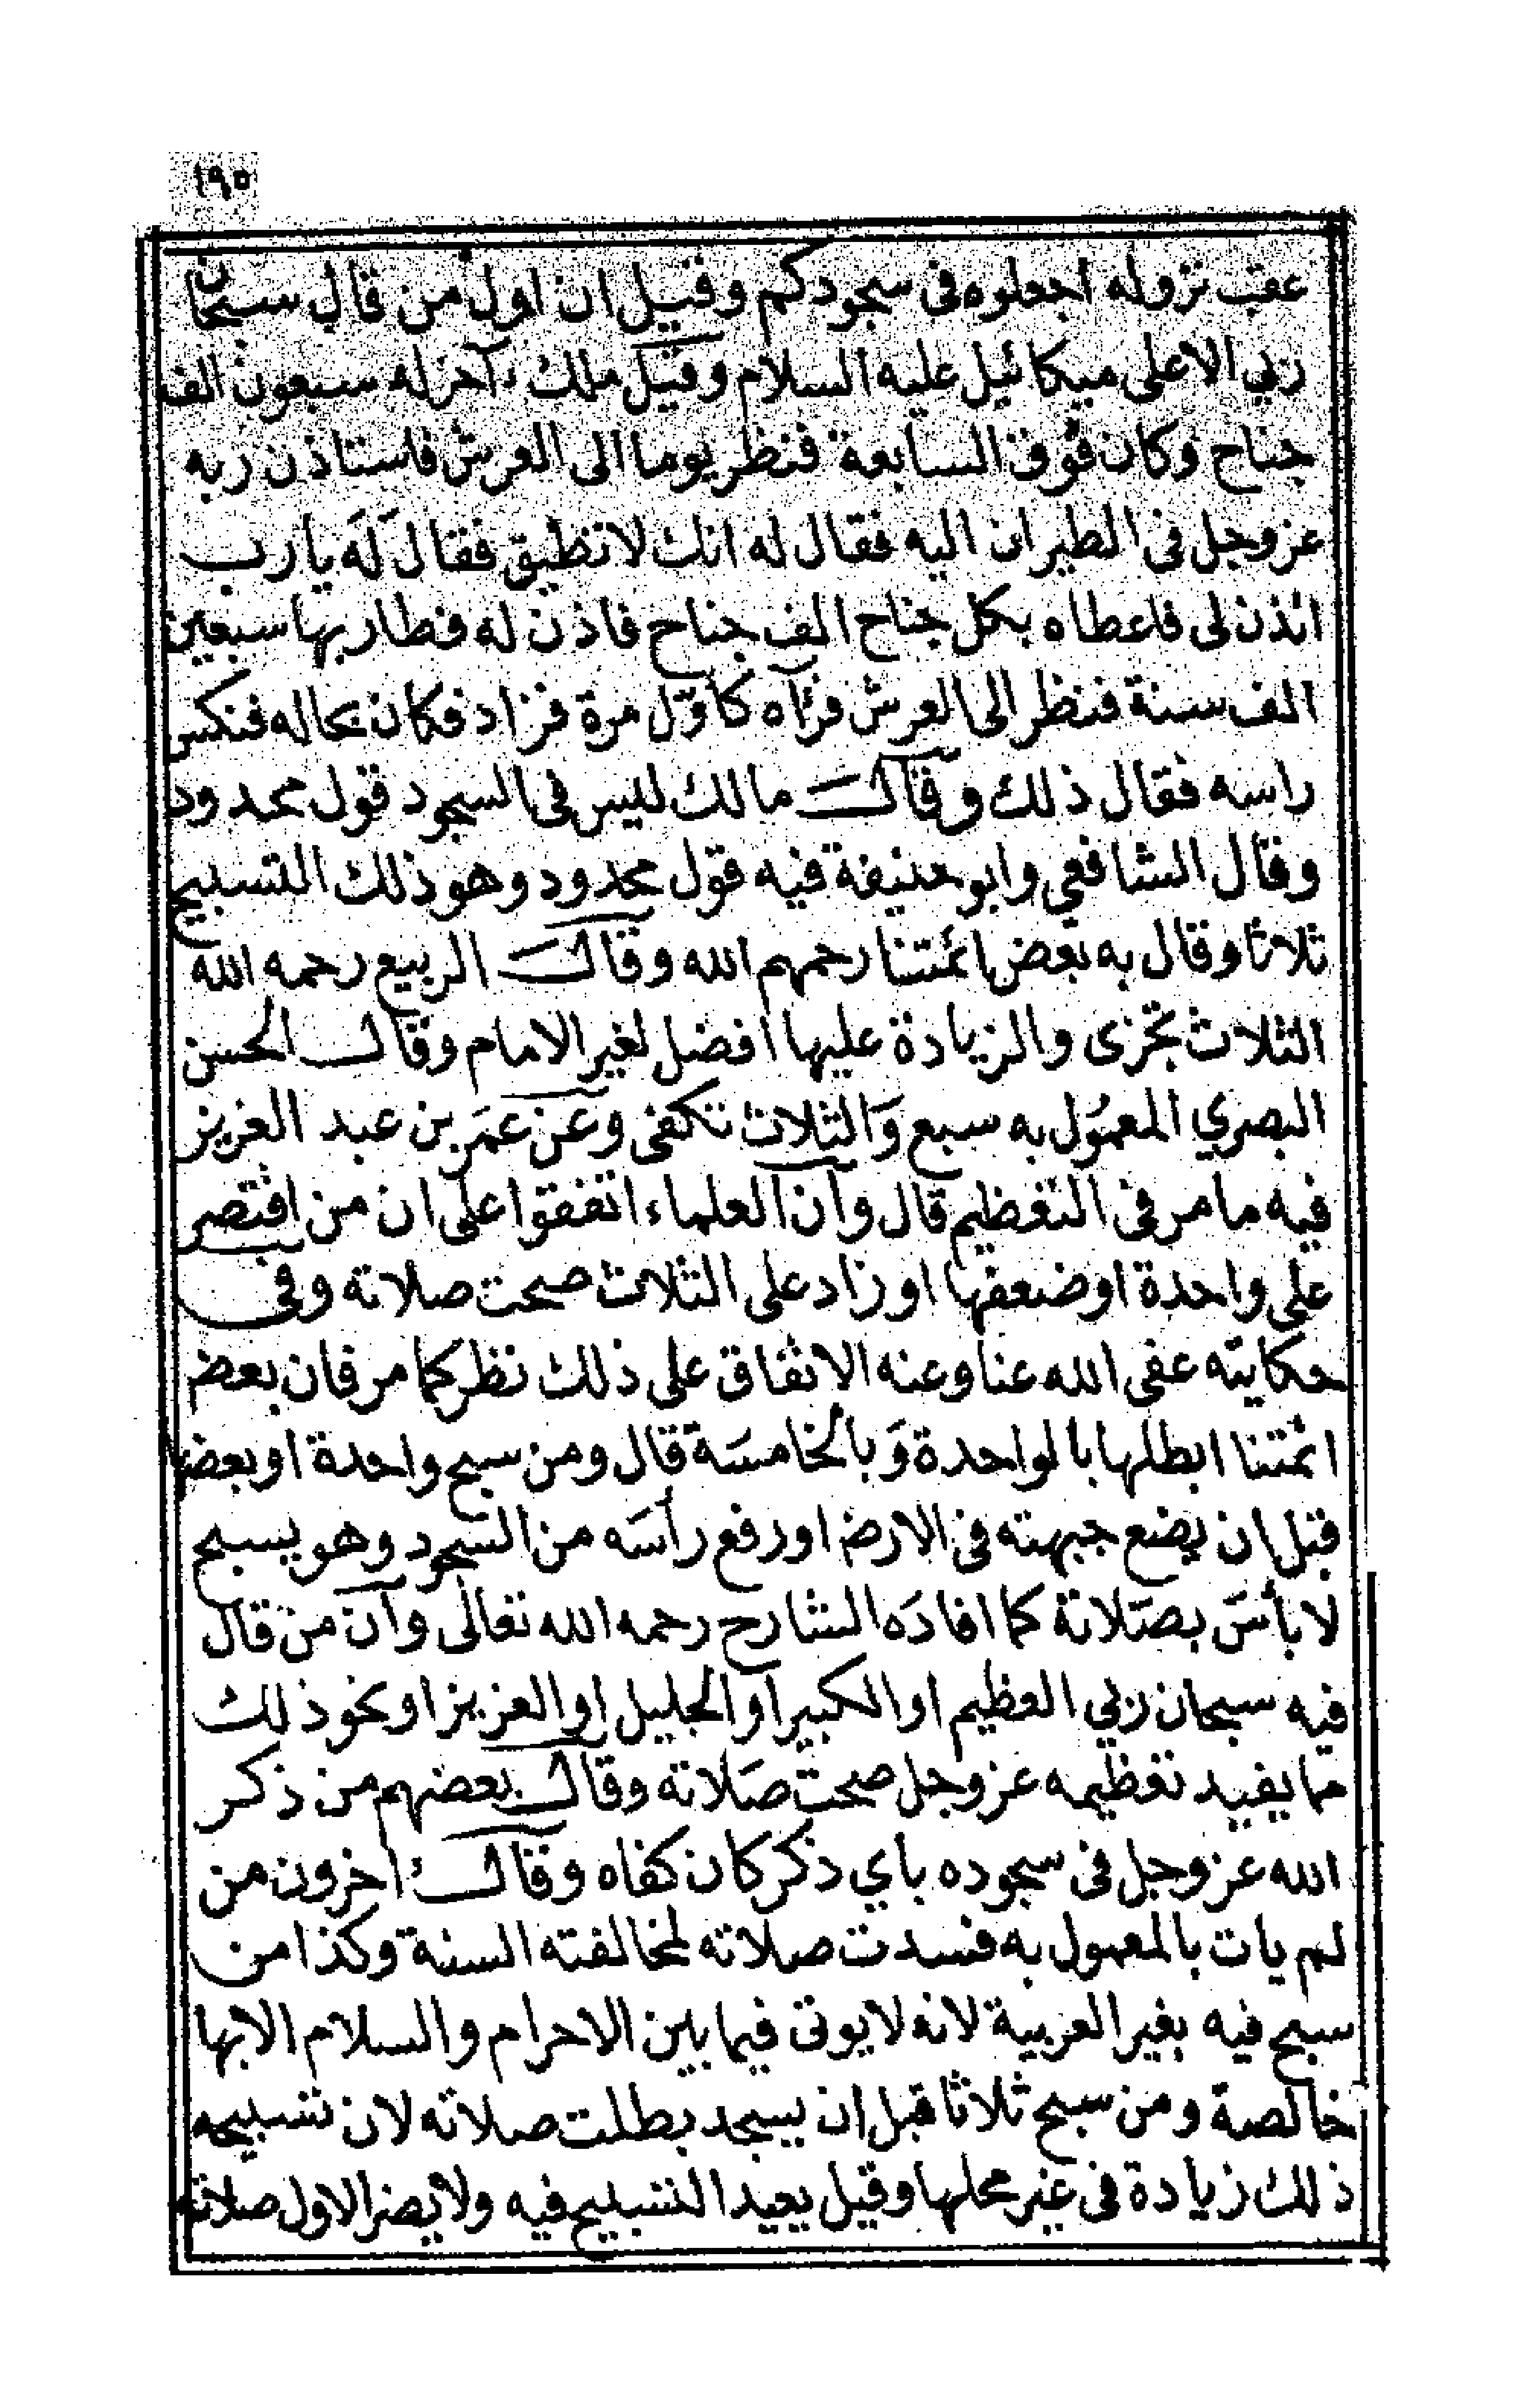 ١٩٥
عقب نزوله اجعلوه فى سجودكم وقيل ان اول من قال سبحان
ربي الاعلى ميكائيل عليه السلام وقيل ملك ءآخر له سبعون الف
جناح وكان فوق السابعة فنظر يوما الى العرش فاستاذن ربه
عز وجل فى الطيران اليه فقال له انك لا تطيق فقال له يا رب
ائذن لى فاعطاه بكل جناح الف جناح فاذن له فطار بها سبعين
الف سنة فنظر الى العرش فرءآه كاول مرة فزاد فكان بحاله فنكس
راسه فقال ذلك وقال مالك ليس فى السجود قول محدود
وقال الشافعي وابو حنيفة فيه قول محدود وهو ذلك التسبيح
ثلاثا وقال به بعض ائمتنا رحمهم الله وقال الربيع رحمه الله
الثلاث تجزى والزيادة عليها افضل لغير الامام وقال الحسن
البصري المعمول به سبع والثلاث تكفى وعن عمر بن عبد العزيز
فيه ما مر فى التعظيم قال وان العلماء اتفقوا على ان من اقتصر
على واحدة او ضعفها او زاد على الثلاث صحت صلاته وفى
حكايته عفى الله عنا وعنه الاتفاق على ذلك نظر كما مر فان بعض
ائمتنا ابطلها بالواحدة وبالخامسة قال ومن سبح واحدة او بعضها
قبل ان يضع جبهته فى الارض او رفع رأسه من السجود وهو يسبح
لا بأس بصلاتة كما افاده الشارح رحمه الله تعالى وان من قال
فيه سبحان ربي العظيم او الكبير او الجليل او العزيز او نحو ذلك
مما يفيد تعظيمه عز وجل صحت صلاته وقال بعضهم من ذكر
الله عز وجل فى سجوده باي ذكر كان كفاه وقال اخرون من
لم يات بالمعمول به فسدت صلاته لمخالفته السنة وكذا من
سبح فيه بغير العربية لانه لا يوتى فيما بين الاحرام والسلام الا بها
خالصة ومن سبح ثلاثا قبل ان يسجد بطلت صلاته لان تسبيحه
ذلك زيادة فى غير محلها وقيل يعيد التسبيح فيه ولا يضر الاول صلاته